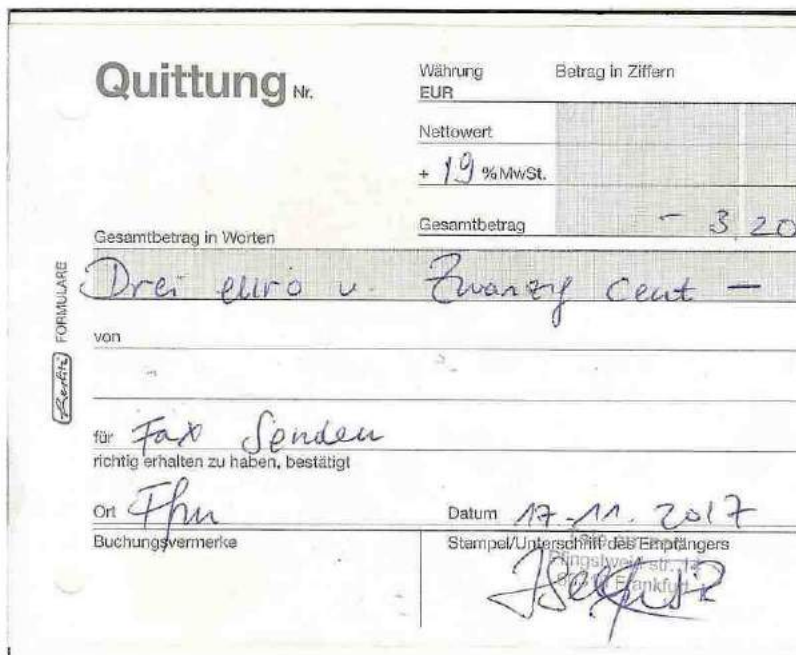 Quittung Nr.
Währung Betrag in Ziffern
EUR
Nettowert
+ 19 % MwSt.
Gesamtbetrag - 3,20
Gesamtbetrag in Worten
Drei euro u. Zwanzig Cent —
von
für Fax Senden
richtig erhalten zu haben, bestätigt
Ort Ffm
Datum 17.11.2017
Buchungsvermerke
Stempel/Unterschrift des Empfängers
Pfingstweid str. 14
Frankfurt
FORMULARE